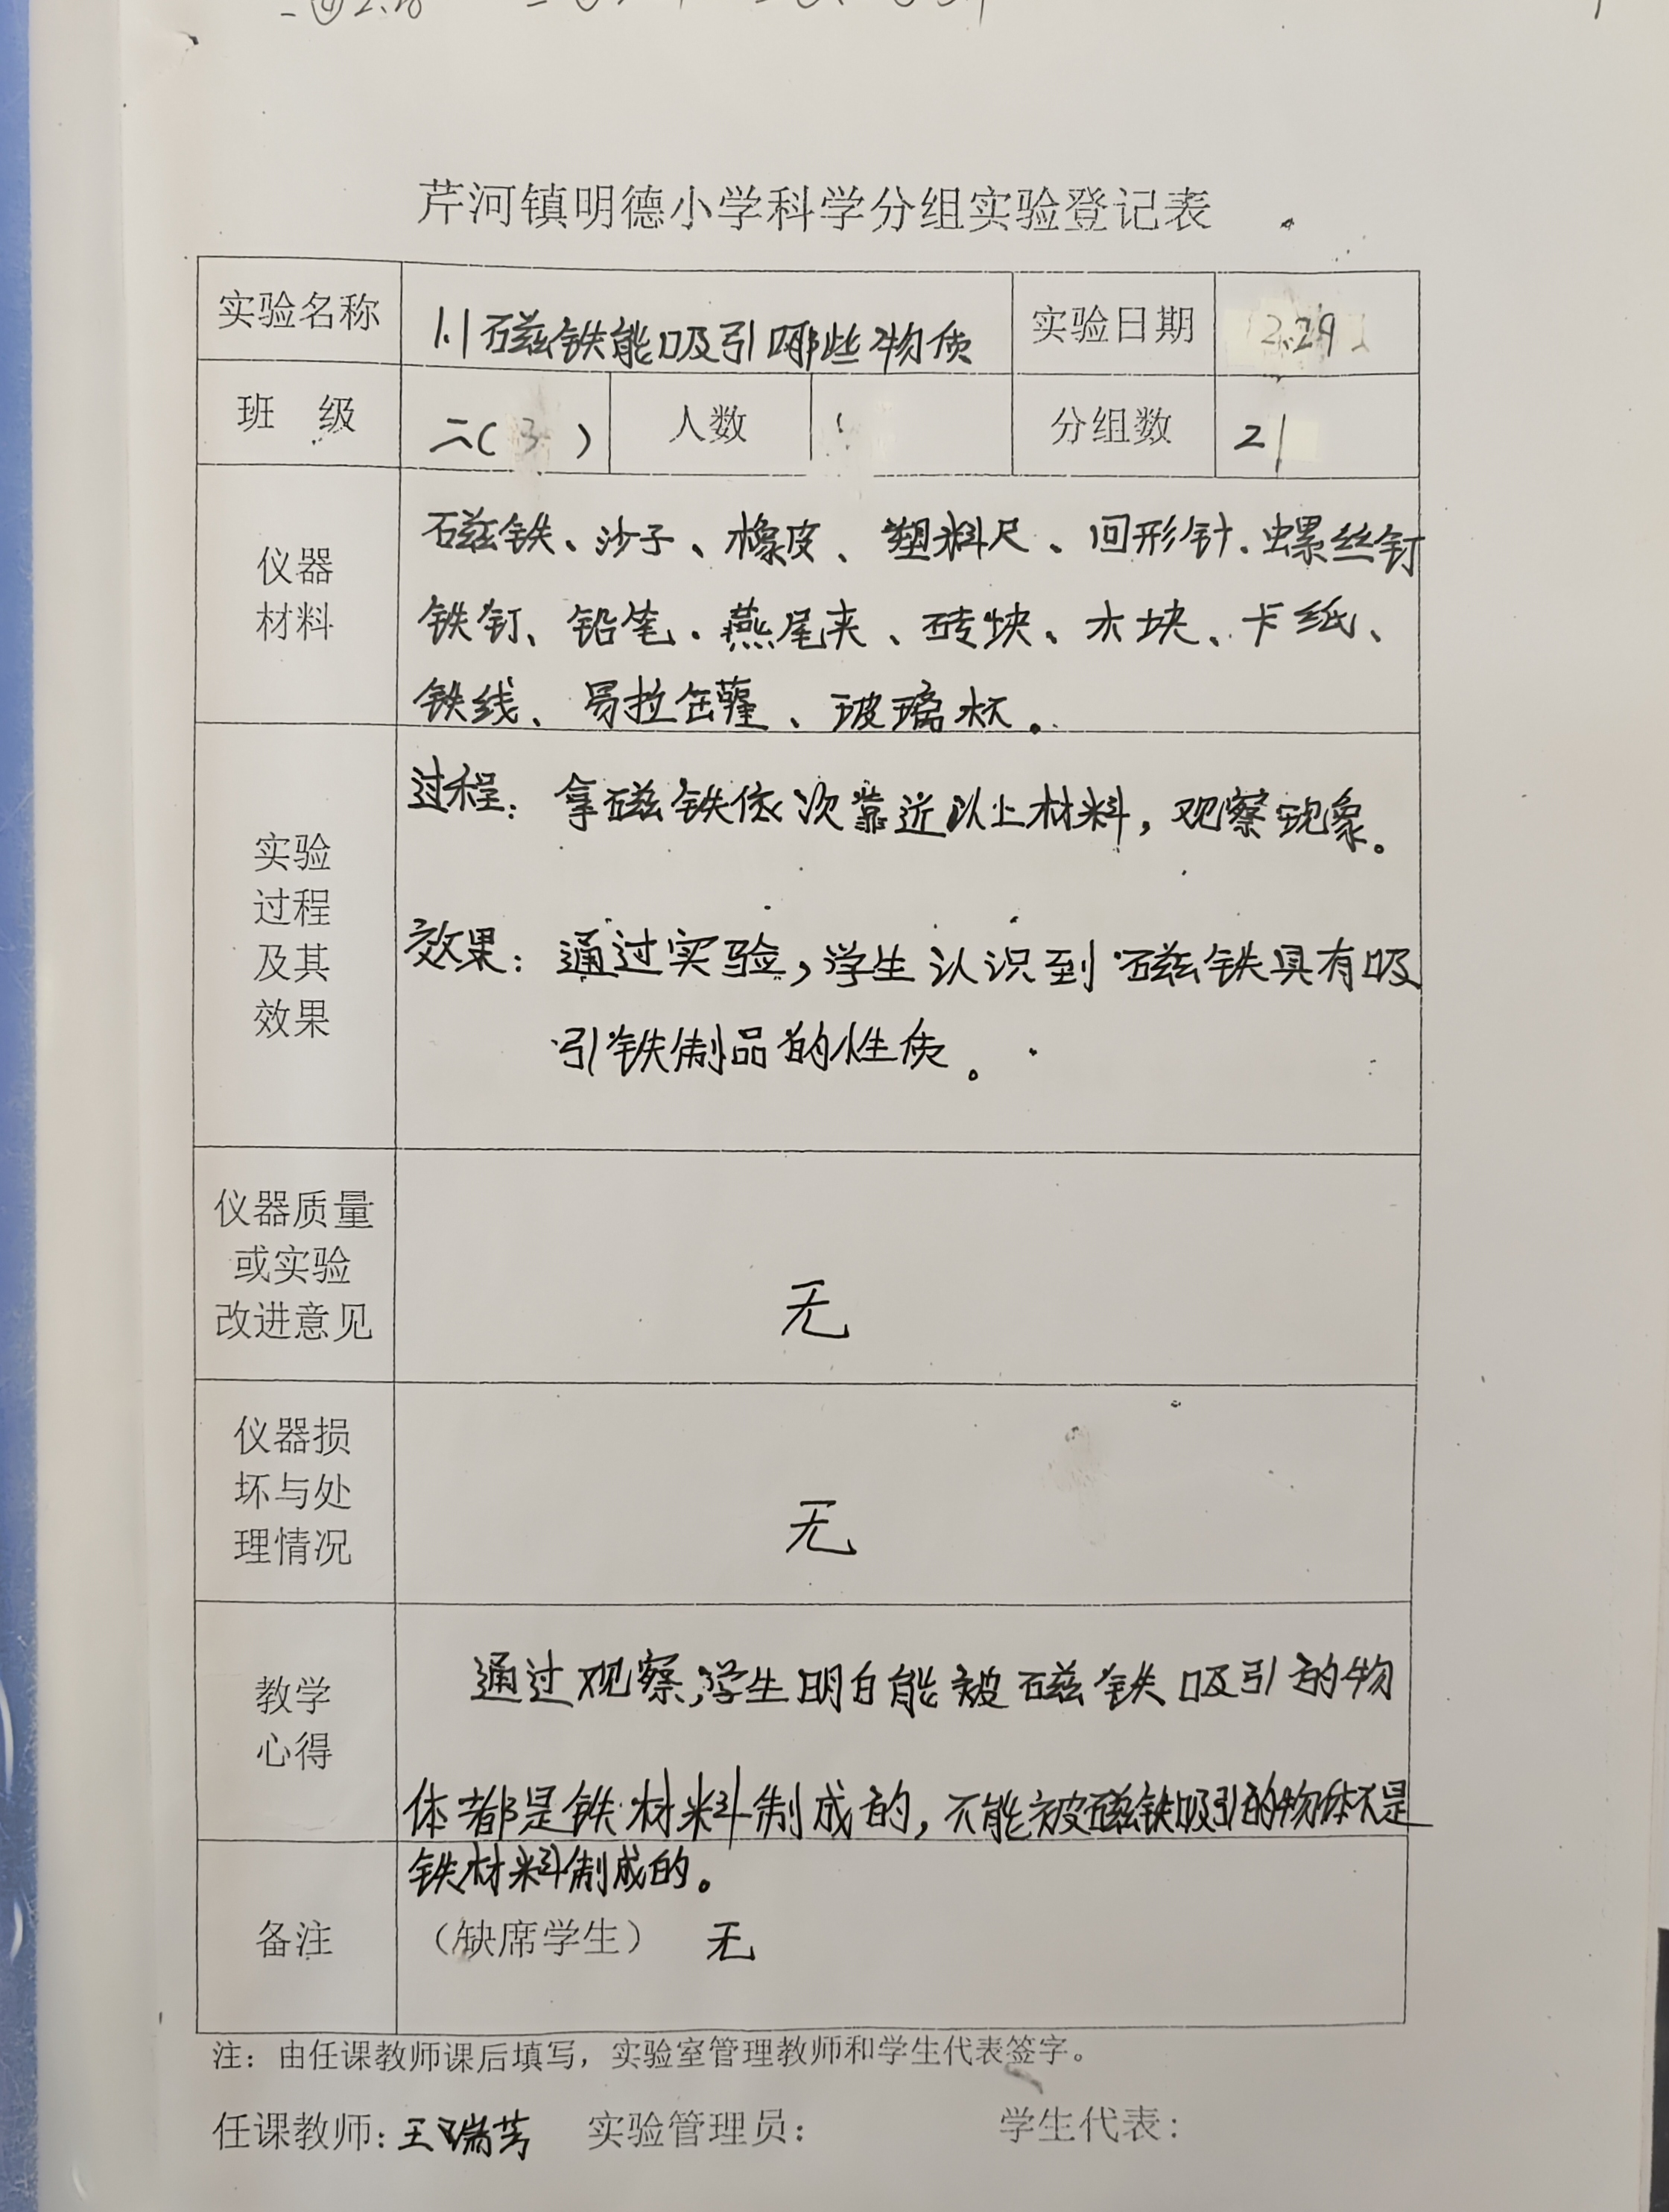 芹河镇明德小学科学分组实验登记表
实验名称 1.1磁铁能吸引哪些物质 实验日期 2.29
班 级 二(3) 人数 分组数 21
仪器
材料
磁铁、沙子、橡皮、塑料尺、回形针、螺丝钉
铁钉、铅笔、燕尾夹、砖块、木块、卡纸、
铁线、易拉罐、玻璃杯。
实验
过程
及其
效果
过程：拿磁铁依次靠近以上材料，观察现象。
效果：通过实验，学生认识到磁铁具有吸
引铁制品的性质。
仪器质量
或实验
改进意见
无
仪器损
坏与处
理情况
无
教学
心得
通过观察，学生明白能被磁铁吸引的物
体都是铁材料制成的，不能被磁铁吸引的物体不是
铁材料制成的。
备注 （缺席学生） 无
注：由任课教师课后填写，实验室管理教师和学生代表签字。
任课教师：王瑞芳 实验管理员： 学生代表：